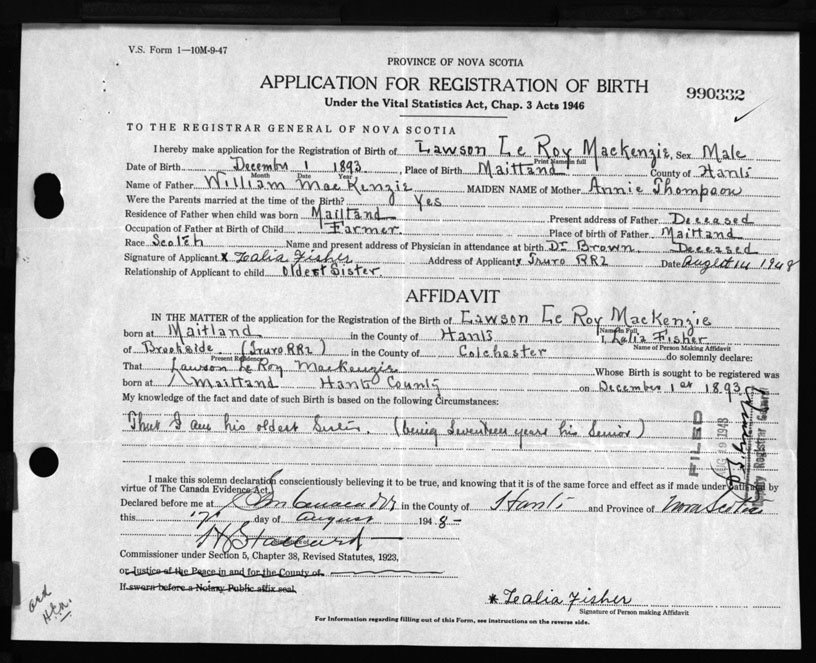 V.S. Form 1—10M-9-47
PROVINCE OF NOVA SCOTIA
APPLICATION FOR REGISTRATION OF BIRTH
990332
Under the Vital Statistics Act, Chap. 3 Acts 1946
TO THE REGISTRAR GENERAL OF NOVA SCOTIA
I hereby make application for the Registration of Birth of Lawson Le Roy Mackenzie, Sex Male
Print Name in full
Date of Birth December 1 1893, Place of Birth Maitland County of Hants
Month Date Year
Name of Father William MacKenzie MAIDEN NAME of Mother Annie Thompson
Were the Parents married at the time of the Birth? Yes
Residence of Father when child was born Maitland Present address of Father Deceased
Occupation of Father at Birth of Child Farmer Place of birth of Father Maitland
Race Scotch Name and present address of Physician in attendance at birth Dr Brown Deceased
Signature of Applicant x Lalia Fisher Address of Applicant x Truro RR2 Date August 14 1948
Relationship of Applicant to child oldest Sister
AFFIDAVIT
IN THE MATTER of the application for the Registration of the Birth of Lawson Le Roy MacKenzie
Name in Full
born at Maitland in the County of Hants I, Lalia Fisher
Name of Person Making Affidavit
of Brookside (Truro RR2) in the County of Colchester do solemnly declare:
Present Residence
That Lawson Le Roy MacKenzie Whose Birth is sought to be registered was
born at Maitland Hants County on December 1st 1893
My knowledge of the fact and date of such Birth is based on the following Circumstances:
That I am his oldest Sister. (being Seventeen years his Senior)
FILED
1948
Deputy Registrar General
I make this solemn declaration conscientiously believing it to be true, and knowing that it is of the same force and effect as if made under oath and by
virtue of The Canada Evidence Act.
Declared before me at in the County of Hants and Province of Nova Scotia
this 17 day of August 1948-
Commissioner under Section 5, Chapter 38, Revised Statutes, 1923,
or Justice of the Peace in and for the County of
If sworn before a Notary Public affix seal.
x Lalia Fisher
Signature of Person making Affidavit
For Information regarding filling out of this Form, see instructions on the reverse side.